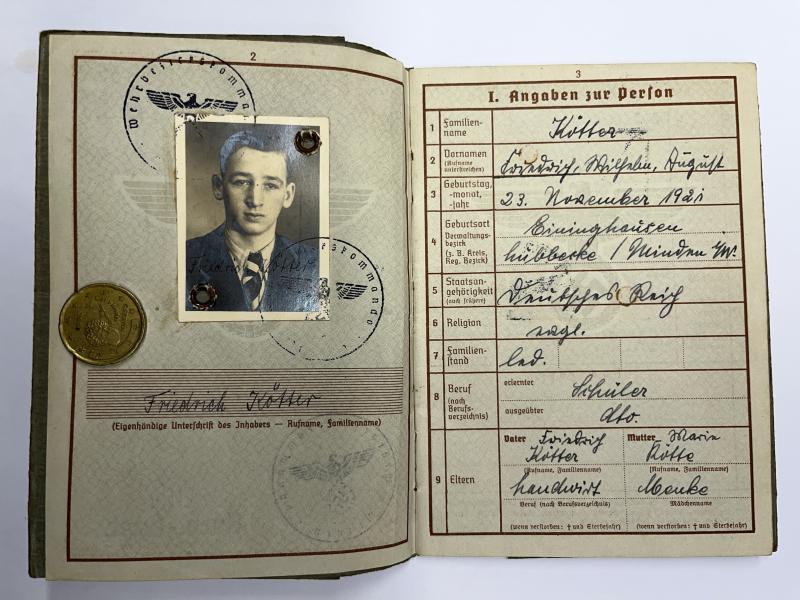 2
Wehrbezirkskommando
Friedrich Kötter
Friedrich Kötter
(Eigenhändige Unterschrift des Inhabers — Rufname, Familienname)
3
I. Angaben zur Person
1 Familien-
name
Kötter
2 Vornamen
(Rufname
unterstreichen)
Friedrich, Wilhelm, August
3 Geburtstag,
-monat,
-jahr
23. November 1921
4 Geburtsort
Verwaltungs-
bezirk
(z. B. Kreis,
Reg. Bezirk)
Eininghausen
Lübbecke / Minden i/W.
5 Staatsan-
gehörigkeit
(auch frühere)
Deutsches Reich
6 Religion
evgl.
7 Familien-
stand
led.
8 Beruf
(nach
Berufs-
verzeichnis)
erlernter
Schüler
ausgeübter
dto.
9 Eltern
Vater Friedrich
Kötter
(Rufname, Familienname)
Landwirt
Beruf (nach Berufsverzeichnis)
(wenn verstorben: † und Sterbejahr)
Mutter Marie
Kötte
(Rufname, Familienname)
Menke
Mädchenname
(wenn verstorben: † und Sterbejahr)